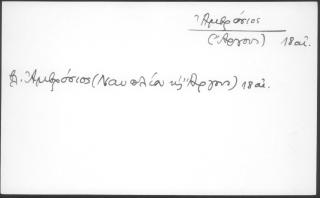 Ἀμβρόσιος
(Ἄργους) 18 αἰ.
βλ. Ἀμβρόσιος (Ναυπλίου κ' Ἄργους) 18 αἰ.